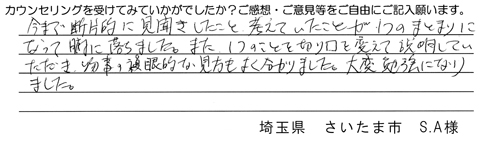 カウンセリングを受けてみていかがでしたか？ご感想・ご意見等をご自由にご記入願います。
今まで断片的に見聞きしたこと、考えていたことが1つのまとまりに
なって腑に落ちました。また1つのことを切り口を変えて説明してい
ただき、物事の複眼的な見方もよく分かりました。大変勉強になり
ました。
埼玉県　さいたま市　S.A様